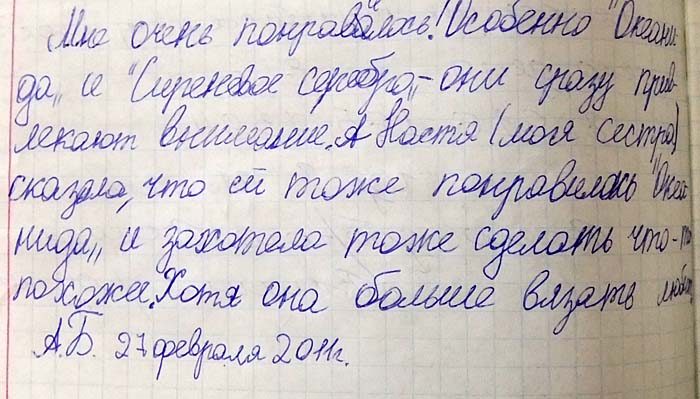 Мне очень понравилось! Особенно "Океани-
да„ и "Сиреневое серебро„ - они сразу прив-
лекают внимание. А Настя (моя сестра)
сказала, что ей тоже понравилась "Океа-
нида„ и захотела тоже сделать что-то
похожее. Хотя она больше вязать любит
А.Б. 27 февраля 2011г.